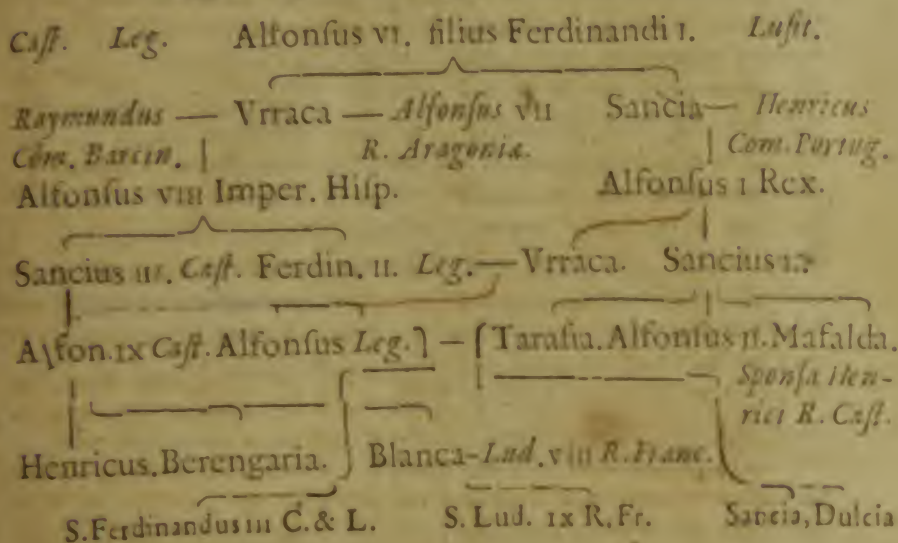 Caſt. Leg. Alfonſus VI. filius Ferdinandi I. Luſit.
Raymundus — Vrraca — Alfonſus VII Sancia — Henricus
Com. Barcin. R. Aragoniæ. Com. Portug.
Alfonſus VIII Imper. Hiſp. Alfonſus I Rex.
Sancius III. Caſt. Ferdin. II. Leg. — Vrraca. Sancius I.
Alfon. IX Caſt. Alfonſus Leg.] — [Taraſia. Alfonſus II. Mafalda.
Sponſa Hen-
rici R. Caſt.
Henricus. Berengaria. Blanca - Lud. VIII R. Franc.
S. Ferdinandus III C. & L. S. Lud. IX R. Fr. Sancia, Dulcia